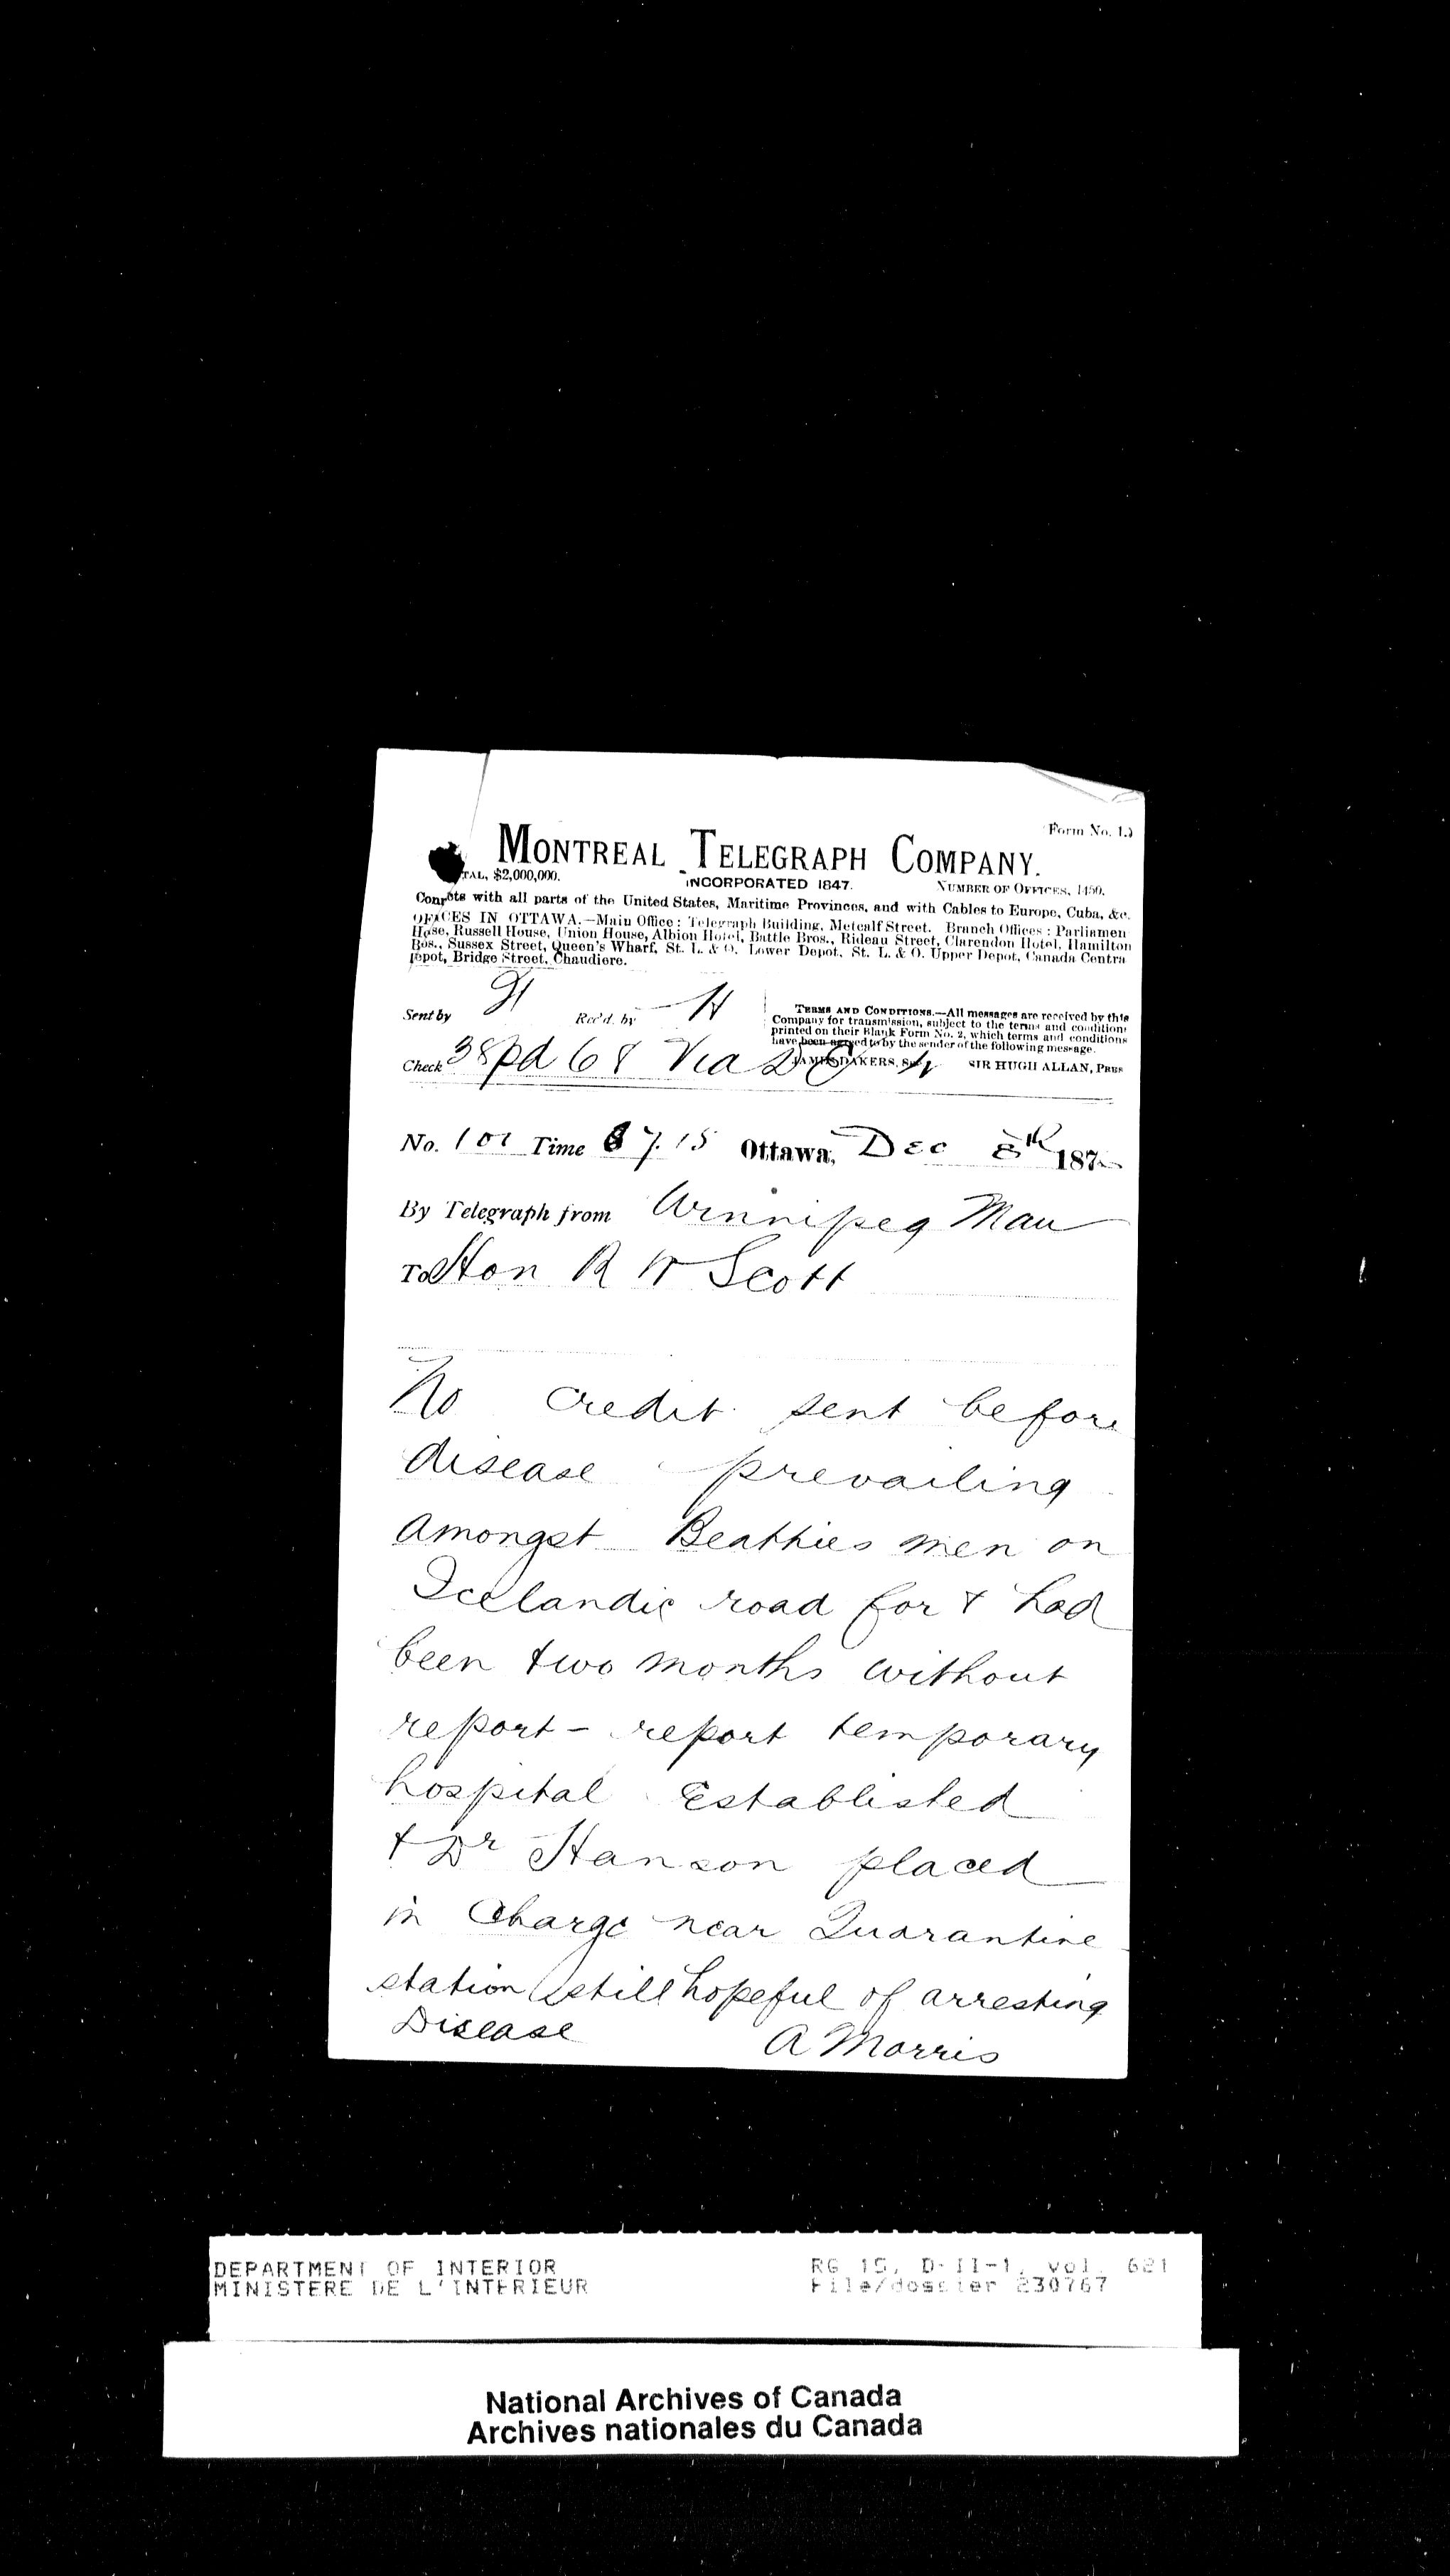 (Form No. 1.)
MONTREAL TELEGRAPH COMPANY.
TAL, $2,000,000. INCORPORATED 1847. NUMBER OF OFFICES, 1450.
with all parts of the United States, Maritime Provinces, and with Cables to Europe, Cuba, &c.
IN OTTAWA.—Main Office: Telegraph Building, Metcalf Street. Branch Offices: Parliamen
Russell House, Union House, Albion Hotel, Battle Bros., Rideau Street, Clarendon Hotel, Hamilton
Sussex Street, Queen's Wharf, St. L. & O. Lower Depot, St. L. & O. Upper Depot, Canada Centra
Bridge Street, Chaudiere.
Sent by Rec'd. by H
TERMS AND CONDITIONS.—All messages are received by this
Company for transmission, subject to the terms and conditions
printed on their Blank Form No. 2, which terms and conditions
have been agreed to by the sender of the following message.
JAMES DAKERS, Sec. SIR HUGH ALLAN, PRES
Check 38 pd 68 Via
No. 101 Time 7.15 Ottawa, Dec 8th 187
By Telegraph from Winnipeg Man
To Hon R W Scott
No credit sent before
disease prevailing
amongst Beatties men on
Icelandic road for & had
been two months without
report - report temporary
hospital Established
& Dr Hanson placed
in Charge near Quarantine
station still hopeful of arresting
Disease A Morris
DEPARTMENT OF INTERIOR RG 15, D-II-1, vol. 621
MINISTERE DE L'INTERIEUR File/dossier 230767
National Archives of Canada
Archives nationales du Canada